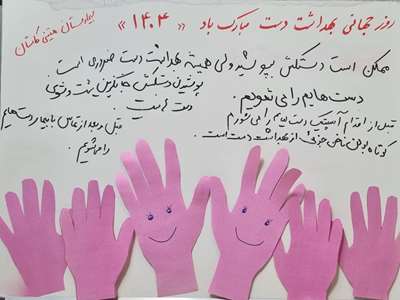 روز جهانی بهداشت دست مبارک باد «۱۴۰۴»
بیمارستان هیئتی گلستان
ممکن است دستکش بپوشید ولی همیشه بهداشت دست ضروری است
پوشیدن دستکش جایگزین شست و شوی
دست نیست.
دست‌هایم را می‌شویم.
قبل از اقدام آسپتیک دست‌هایم را می‌شورم
کوتاه بودن ناخن جزئی از بهداشت دست است.
قبل و بعد از تماس با بیمار دست‌هایم
را میشویم.